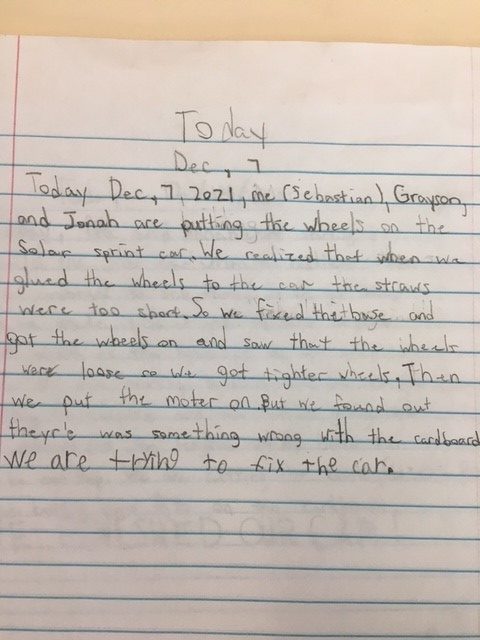 Today
Dec, 7
Today Dec, 7, 2021, me (Sebastian), Grayson,
and Jonah are putting the wheels on the
Solar sprint car. We realized that when we
glued the wheels to the car the straws
were too short. So we fixed and
got the wheels on and saw that the wheels
were loose so we got tighter wheels. Then
we put the moter on. But we found out
theyr'e was something wrong with the cardboard
We are trying to fix the car.